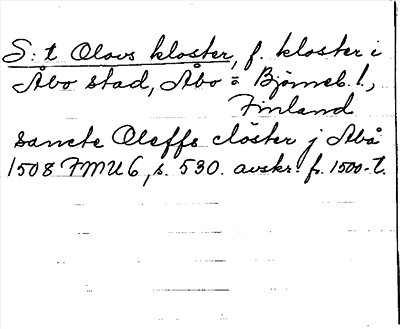 S:t Olovs kloster, f. kloster i
Åbo stad, Åbo o Björneb. l.,
Finland
sancte Oleffs clöster j Abå
1508 FMU 6, s. 530. avskr. fr. 1500-t.